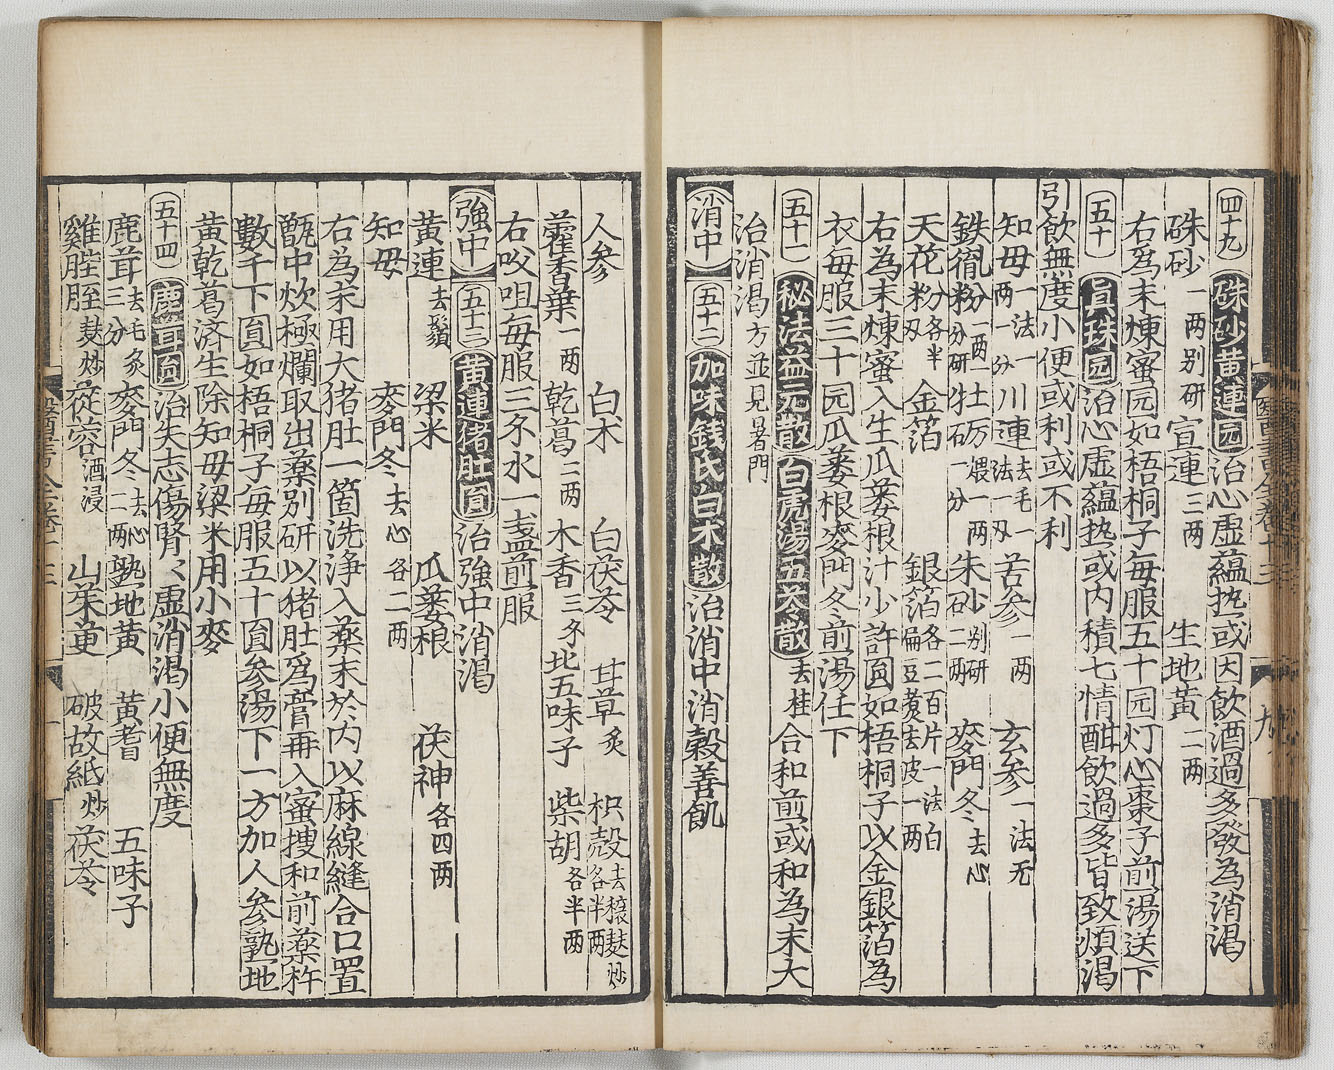 四十九 硃砂黄連园 治心虚蘊热或因飲酒過多發為消渴
硃砂一两别研 宣連三两 生地黄二两
右為末煉蜜园如梧桐子每服五十园灯心棗子前湯送下
五十 眞珠园 治心虚蘊热或内積七情酣飲過多皆致煩渴
引飲無度小便或利或不利
知母一法一两一分 川連去毛一法一刄 苦参一两 玄参一法无
鉄胤粉一两一分研 牡厉煨一两 朱砂别研二两 麥門冬去心
天花粉各半刄 金箔 銀箔各二百片一法白扁豆煑去皮一两
右為末煉蜜入生瓜蒌根汁少許圎如梧桐子以金銀箔為
衣每服三十园瓜蒌根麥門冬前湯任下
五十一 秘法益元散 白虎湯五苓散 去桂 合和煎或和為末大
治消渴方並見暑門
消中 五十二 加味銭氏白术散 治消中消穀善飢
人参 白术 白茯苓 甘草炙 枳殻去穣麸炒各半两
藿香葉一两 乾葛二两 木香三分 北五味子 柴胡各半两
右㕮咀每服三分水一盞前服
強中 五十三 黄連猪肚圎 治強中消渴
黄連去鬚 粱米 瓜蒌根 茯神各四两
知母 麥門冬去心各二两
右為末用大猪肚一箇洗浄入薬末於内以麻線縫合口置
甑中炊極爛取出薬别研以猪肚為膏再入蜜搜和前薬杵
數千下圎如梧桐子每服五十圎参湯下一方加人参熟地
黄乾葛済生除知母粱米用小麥
五十四 鹿茸圎 治失志傷腎〻虚消渴小便無度
鹿茸去毛炙三分 麥門冬去心二两 熟地黄 黄耆 五味子
雞膍胵麸炒 從容酒浸 山茱萸 破故紙炒 茯苓